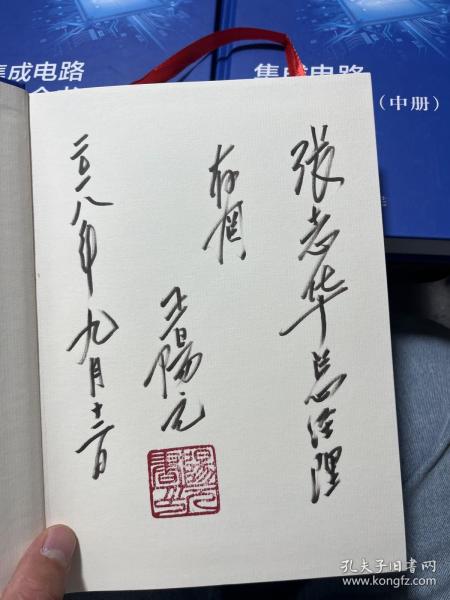 张志华总经理
存阅
王陽元
二〇一八年九月十二日
集成电路
全书
集成电路
(中册)
孔夫子旧书网
www.kongfz.com